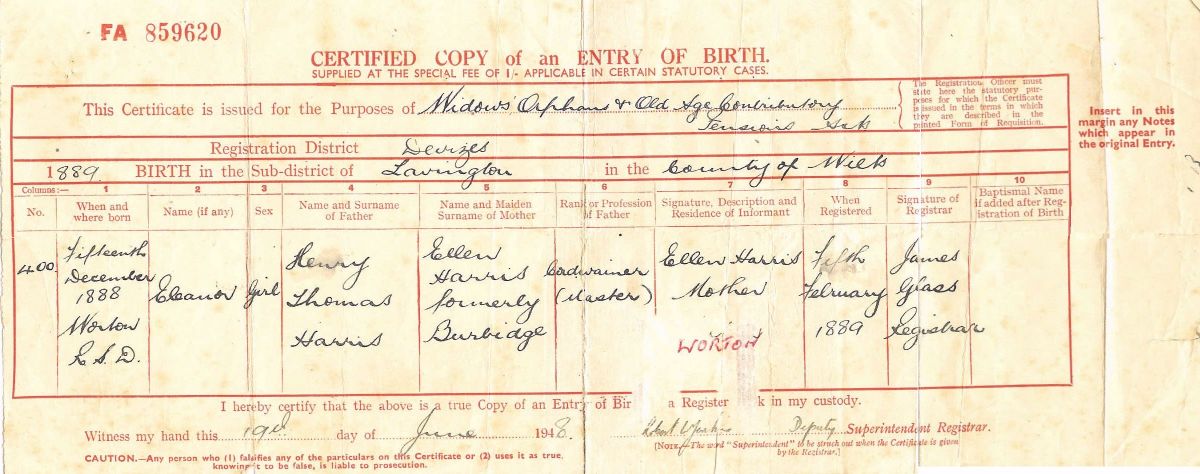 FA 859620
CERTIFIED COPY of an ENTRY OF BIRTH.
SUPPLIED AT THE SPECIAL FEE OF 1/- APPLICABLE IN CERTAIN STATUTORY CASES.
This Certificate is issued for the Purposes of Widows' Orphans & Old Age Contributory
Pensions Acts
The Registration Officer must
state here the statutory pur-
poses for which the Certificate
is issued in the terms in which
they are described in the
printed Form of Requisition.
Insert in this
margin any Notes
which appear in
the original Entry.
Registration District Devizes
1889. BIRTH in the Sub-district of Lavington in the County of Wilts
Columns:— 1 2 3 4 5 6 7 8 9 10
No. When and where born Name (if any) Sex Name and Surname of Father Name and Maiden Surname of Mother Rank or Profession of Father Signature, Description and Residence of Informant When Registered Signature of Registrar Baptismal Name if added after Reg- istration of Birth
400. Fifteenth December 1888 Worton R.S.D. Eleanor Girl Henry Thomas Harris Ellen Harris formerly Burbidge Cordwainer (Master) Ellen Harris Mother WORTON Fifth February 1889 James Glass Registrar
I hereby certify that the above is a true Copy of an Entry of Bir a Register k in my custody.
Witness my hand this 19th day of June 1948. Deputy Superintendent Registrar.
CAUTION.—Any person who (1) falsifies any of the particulars on this Certificate or (2) uses it as true,
knowing it to be false, is liable to prosecution.
[NOTE.—The word "Superintendent" to be struck out when the Certificate is given
by the Registrar.]